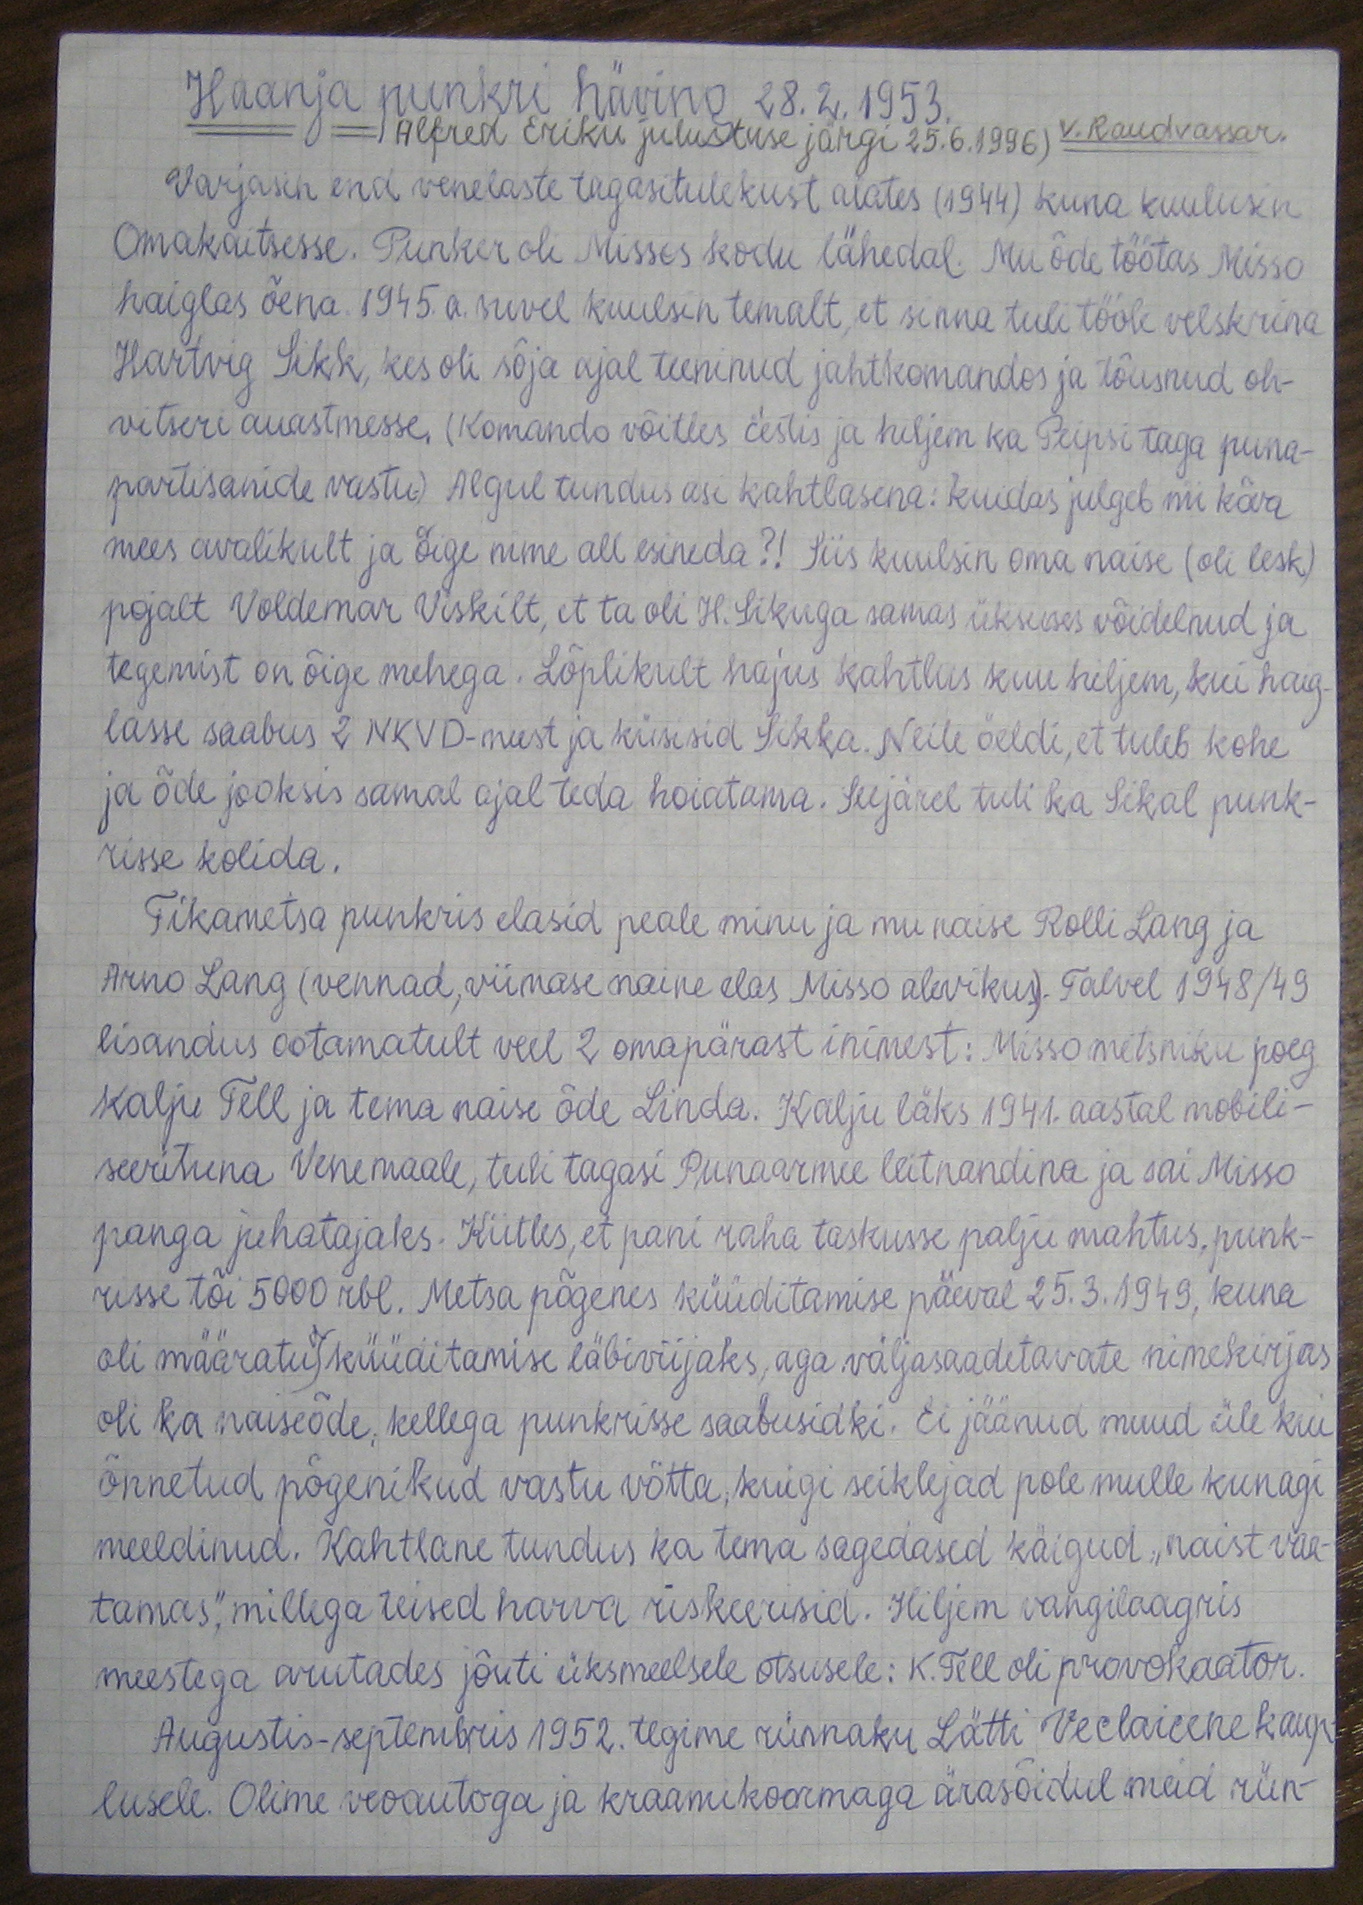 Haanja punkri häving 28.2.1953.
(Alfred Eriku jutustuse järgi 25.6.1996) V. Raudvassar.
Varjasin end venelaste tagasitulekust alates (1944) kuna kuulusin
Omakaitsesse. Punker oli Missos kodu lähedal. Mu õde töötas Misso
haiglas õena. 1945. a. suvel kuulsin temalt, et sinna tuli tööle velskrina
Hartvig Sikk, kes oli sõja ajal teeninud jahtkomandos ja tõusnud oh-
vitseri auastmesse. (Komando võitles Eestis ja hiljem ka Peipsi taga puna-
partisanide vastu.) Algul tundus asi kahtlasena: kuidas julgeb nii kõva
mees avalikult ja õige nime all esineda?! Siis kuulsin oma naise (oli lesk)
pojalt Voldemar Viskilt, et ta oli H. Sikuga samas üksuses võidelnud ja
tegemist on õige mehega. Lõplikult hajus kahtlus kuu hiljem, kui haig-
lasse saabus 2 NKVD-meest ja küsisid Sikka. Neile öeldi, et tuleb kohe
ja õde jooksis samal ajal teda hoiatama. Seejärel tuli ka Sikal punk-
risse kolida.
Tikametsa punkris elasid peale minu ja mu naise Rolli Lang ja
Arno Lang (vennad, viimase naine elas Misso alevikus). Talvel 1948/49
lisandus ootamatult veel 2 omapärast inimest: Misso metsniku poeg
Kalju Tell ja tema naise õde Linda. Kalju läks 1941. aastal mobili-
seerituna Venemaale, tuli tagasi Punaarmee leitnandina ja sai Misso
panga juhatajaks. Kiitles, et pani raha taskusse palju mahtus, punk-
risse tõi 5000 rbl. Metsa põgenes küüditamise päeval 25.3.1949, kuna
oli määratud küüditamise läbiviijaks, aga väljasaadetavate nimekirjas
oli ka naiseõde, kellega punkrisse saabusidki. Ei jäänud muud üle kui
õnnetud põgenikud vastu võtta, kuigi seiklejad pole mulle kunagi
meeldinud. Kahtlane tundus ka tema sagedased käigud „naist vaa-
tamas”, millega teised harva riskeerisid. Hiljem vangilaagris
meestega arutades jõuti üksmeelsele otsusele: K. Tell oli provokaator.
Augustis-septembris 1952. tegime rünnaku Lätti Veclaicene kaup-
lusele. Olime veoautoga ja kraamikoormaga ärasõidul meid rün-